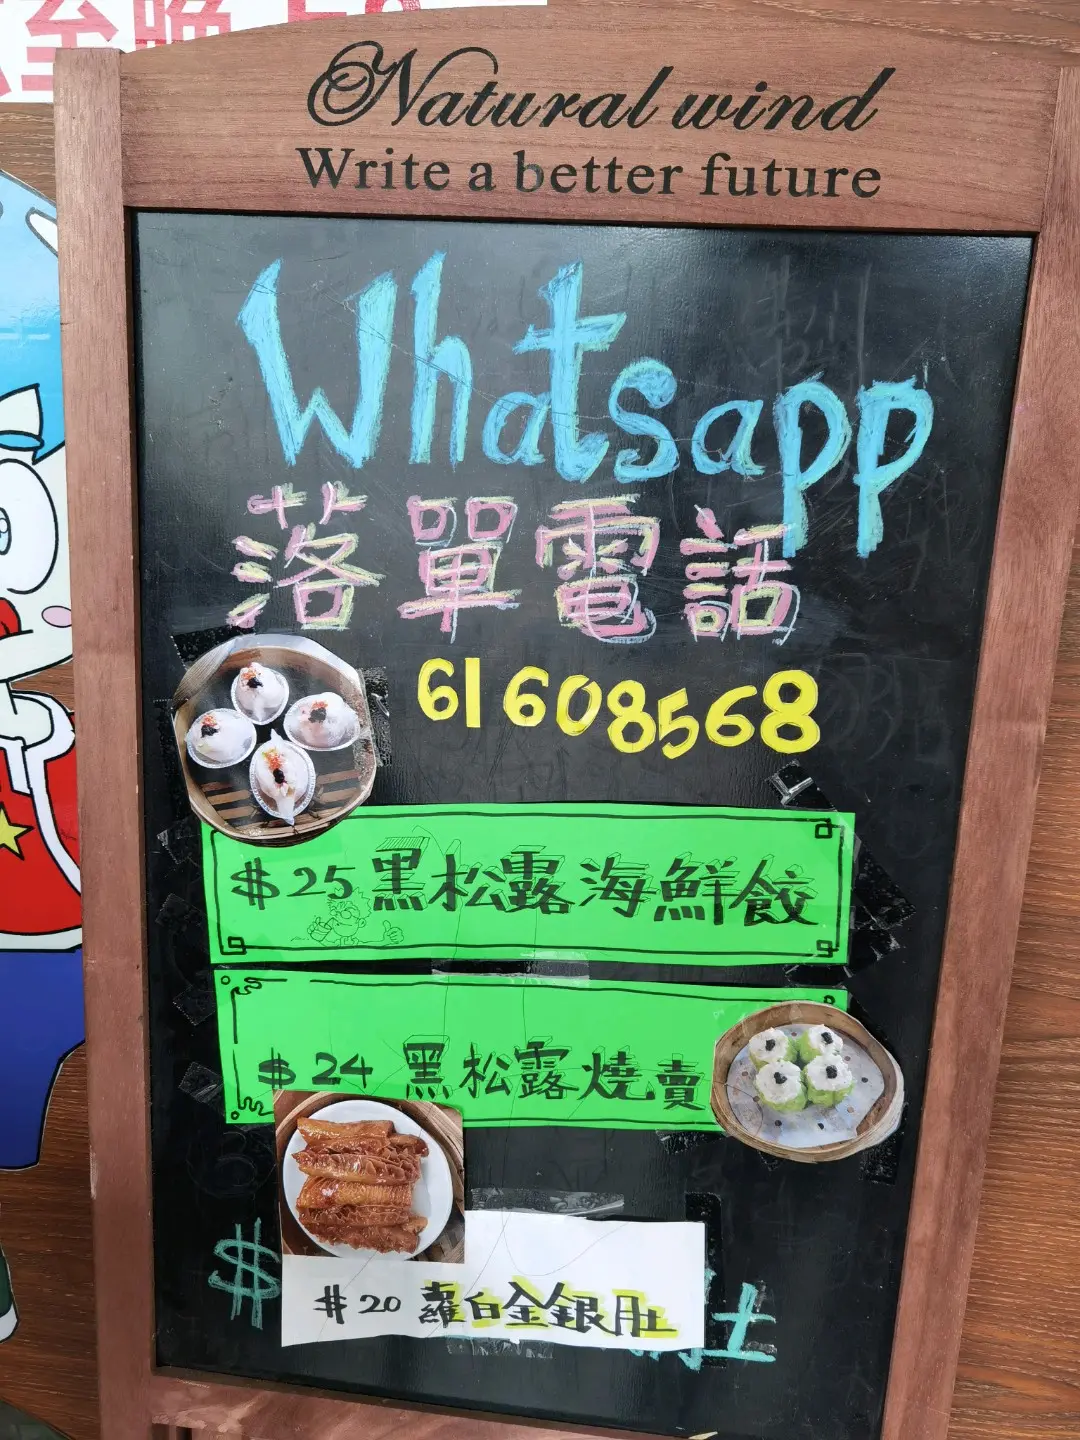 至晚
Natural wind
Write a better future
Whatsapp
落單電話
61608568
$25黑松露海鮮餃
$24 黑松露燒賣
$20 蘿白金銀肚
$